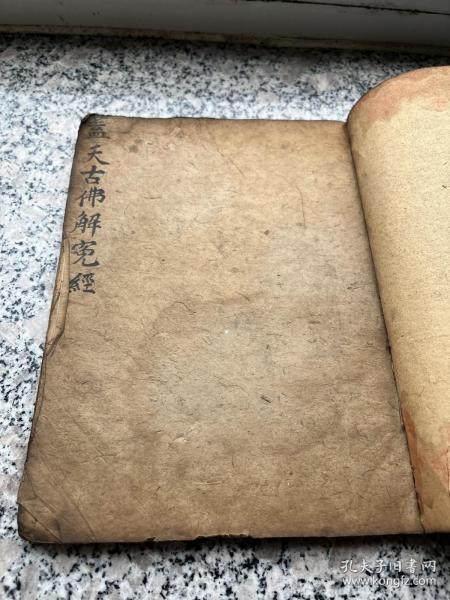 蓋天古佛解寃經
孔夫子旧书网
www.kongfz.com